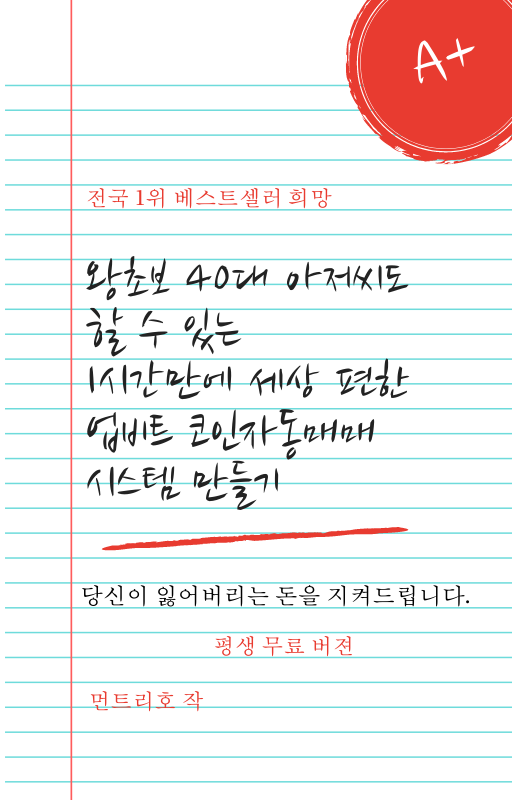 A+
전국 1위 베스트셀러 희망
왕초보 40대 아저씨도
할 수 있는
1시간만에 세상 편한
업비트 코인자동매매
시스템 만들기
당신이 잃어버리는 돈을 지켜드립니다.
평생 무료 버젼
먼트리호 작